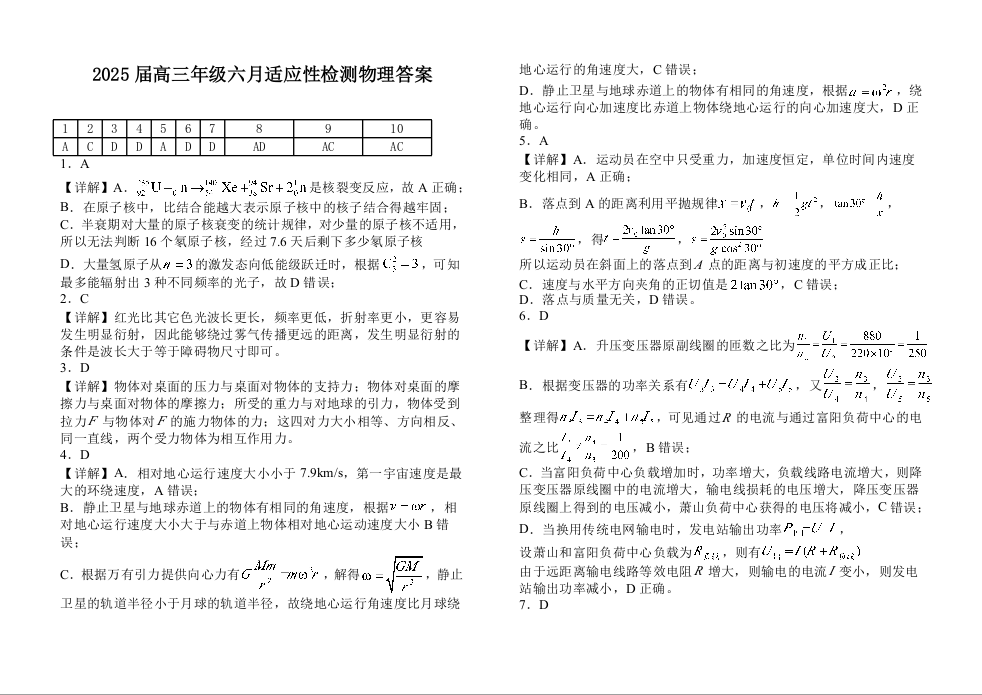 2025 届高三年级六月适应性检测物理答案
1 2 3 4 5 6 7 8 9 10
A C D D A D D AD AC AC
1．A
【详解】A．是核裂变反应，故 A 正确；
B．在原子核中，比结合能越大表示原子核中的核子结合得越牢固；
C．半衰期对大量的原子核衰变的统计规律，对少量的原子核不适用，
所以无法判断 16 个氡原子核，经过 7.6 天后剩下多少氡原子核
D．大量氢原子从 n=3 的激发态向低能级跃迁时，根据 C₃²=3，可知
最多能辐射出 3 种不同频率的光子，故 D 错误；
2．C
【详解】红光比其它色光波长更长，频率更低，折射率更小，更容易
发生明显衍射，因此能够绕过雾气传播更远的距离，发生明显衍射的
条件是波长大于等于障碍物尺寸即可。
3．D
【详解】物体对桌面的压力与桌面对物体的支持力；物体对桌面的摩
擦力与桌面对物体的摩擦力；所受的重力与对地球的引力，物体受到
拉力 F 与物体对 F 的施力物体的力；这四对力大小相等、方向相反、
同一直线，两个受力物体为相互作用力。
4．D
【详解】A．相对地心运行速度大小小于 7.9km/s，第一宇宙速度是最
大的环绕速度，A 错误；
B．静止卫星与地球赤道上的物体有相同的角速度，根据 v=ωr，相
对地心运行速度大小大于与赤道上物体相对地心运动速度大小 B 错
误；
C．根据万有引力提供向心力有 G Mm/r² =mω²r，解得 ω=√(GM/r³)，静止
卫星的轨道半径小于月球的轨道半径，故绕地心运行角速度比月球绕
地心运行的角速度大，C 错误；
D．静止卫星与地球赤道上的物体有相同的角速度，根据 a=ω²r，绕
地心运行向心加速度比赤道上物体绕地心运行的向心加速度大，D 正
确。
5．A
【详解】A．运动员在空中只受重力，加速度恒定，单位时间内速度
变化相同，A 正确；
B．落点到 A 的距离利用平抛规律 x=v₀t，h ½gt²，tan30° h/x，
s=h/sin30°，得 t=2v₀tan30°/g，s=2v₀²sin30°/gcos²30°
所以运动员在斜面上的落点到 A 点的距离与初速度的平方成正比；
C．速度与水平方向夹角的正切值是 2tan30°，C 错误；
D．落点与质量无关，D 错误。
6．D
【详解】A．升压变压器原副线圈的匝数之比为 880/220×10³=1/250
B．根据变压器的功率关系有 U₃I₃=U₄I₄+U₅I₅，又 U₃/U₄=n₃/n₄，U₃/U₅=n₃/n₅
整理得 n₃I₃=n₄I₄+n₅I₅，可见通过 R 的电流与通过富阳负荷中心的电
流之比，B 错误；
C．当富阳负荷中心负载增加时，功率增大，负载线路电流增大，则降
压变压器原线圈中的电流增大，输电线损耗的电压增大，降压变压器
原线圈上得到的电压减小，萧山负荷中心获得的电压将减小，C 错误；
D．当换用传统电网输电时，发电站输出功率，
设萧山和富阳负荷中心负载为，则有
由于远距离输电线路等效电阻 R 增大，则输电的电流 I 变小，则发电
站输出功率减小，D 正确。
7．D